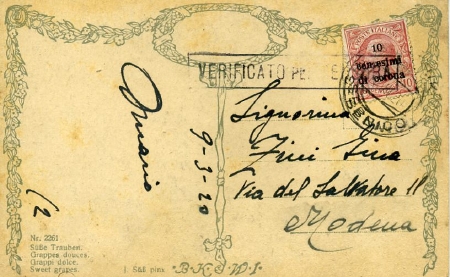 POSTE ITALIANE
10
centesimi
di corona
VERIFICATO PER
Signorina
Fini Gina
Via del Salvatore 11
Modena
9-3-20
Nr. 2261
Süße Trauben.
Grappes douces.
Grappi dolce.
Sweet grapes.
B.K.W.I.